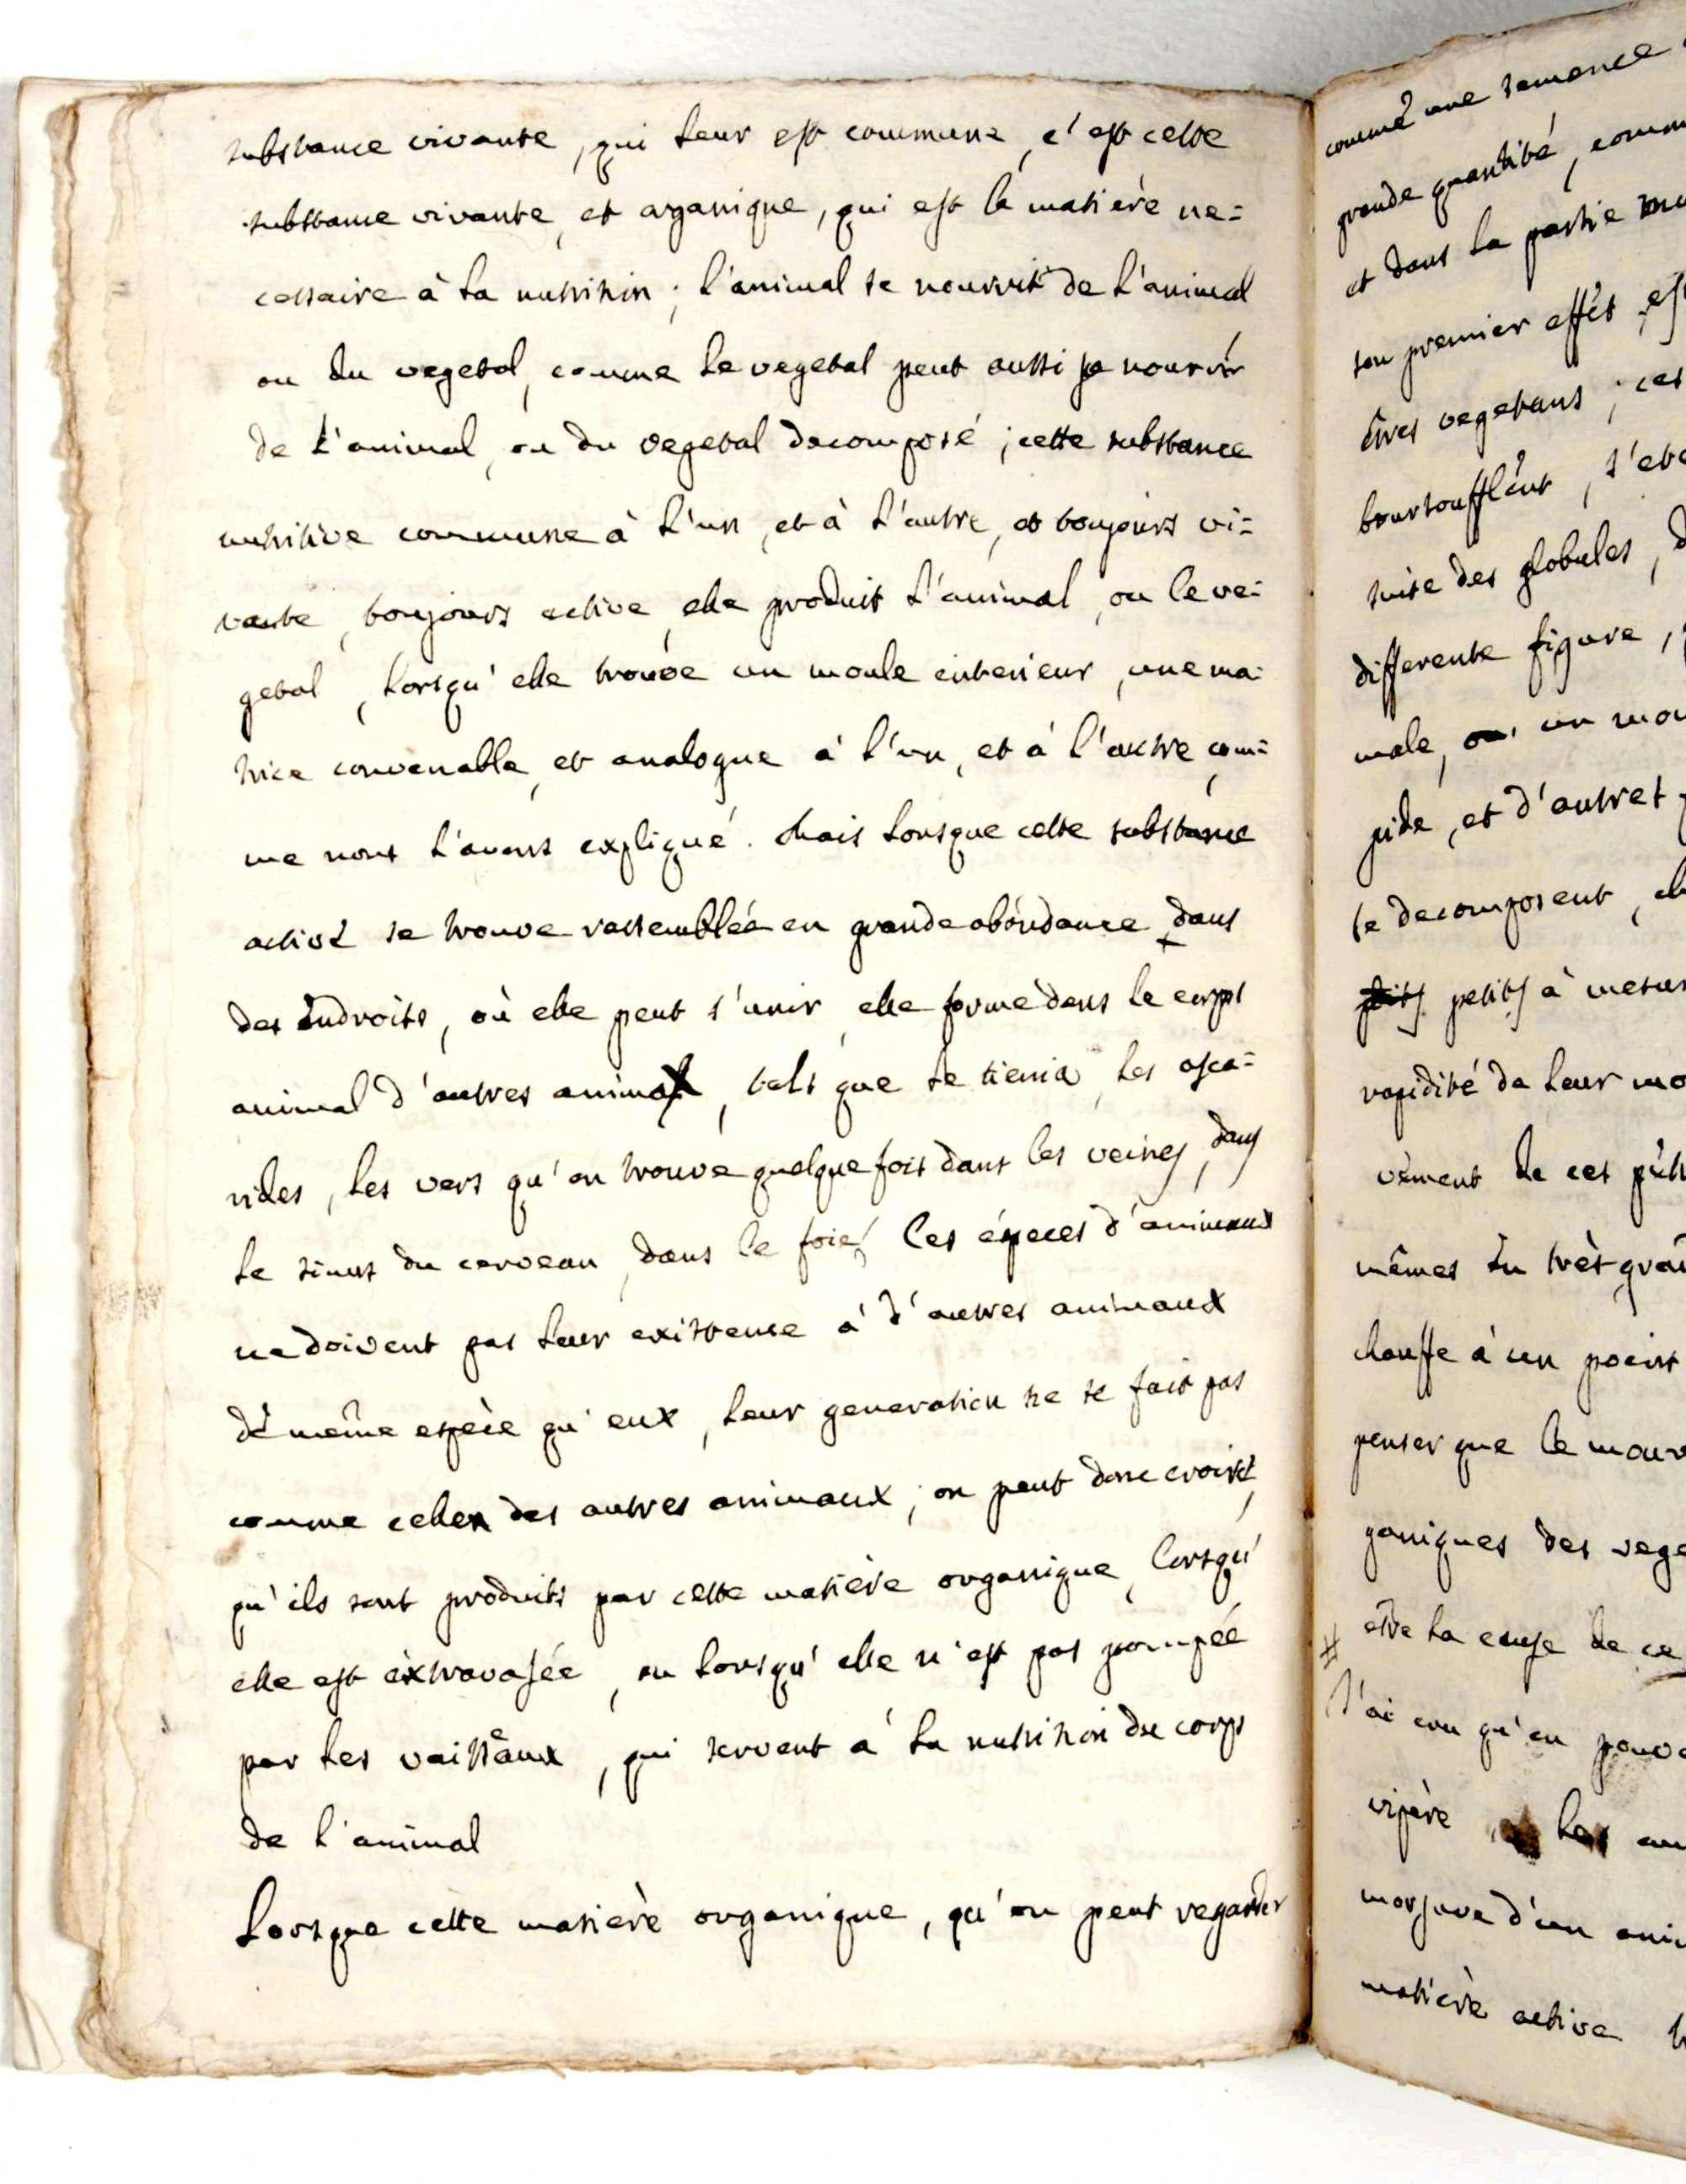 substance vivante, qui leur est commune, c'est cette
substance vivante, et organique, qui est la matiere ne=
cessaire à la nutrition ; l'animal se nourrit de l'animal
ou du vegetal, comme le vegetal peut aussi se nourrir
de l'animal, ou du vegetal decomposé ; cette substance
nutritive commune à l'un, et à l'autre, et toujours vi=
vante, toujours active, elle produit l'animal, ou le ve=
getal, lorsqu'elle trouve un moule interieur, une ma=
trice convenable, et analogue à l'un, et à l'autre com=
me nous l'avons expliqué. Mais lorsque cette substance
active se trouve rassemblée en grande abondance dans
des endroits, où elle peut s'unir, elle forme dans le corps
animal d'autres animax, tels que le tienia, les asca=
rides, les vers qu'on trouve quelque fois dans les veines, dans
le sinus du cerveau, dans le foie. Ces éspeces d'animaux
ne doivent pas leur existence à d'autres animaux
de même espèce qu'eux, leur generation ne se fait pas
comme celle des autres animaux ; on peut donc croire,
qu'ils sont produits par cette matière organique, lorsqu'
elle est extravasée, ou lorsqu'elle n'est pas pompée
par les vaisseaux, qui servent à la nutrition du corps
de l'animal
Lorsque cette matière organique, qu'on peut regarder
comme une semence
grande quantité, comm
et dans la partie
son premier effet, est
êtres vegetans ; ces
boursoufflent, s'ete
suite des globules, d
differente figure,
male, un mou
pide, et d'autres
se decomposent, el
petits à mesur
rapidité de leur mo
vement de ces
mêmes en très gran
chauffe à un point
penser que le mouv
ganiques des vege
être la cause de ce
# J'ai cru qu'on pouvo
vipère, les
morsure d'un ani
matière active